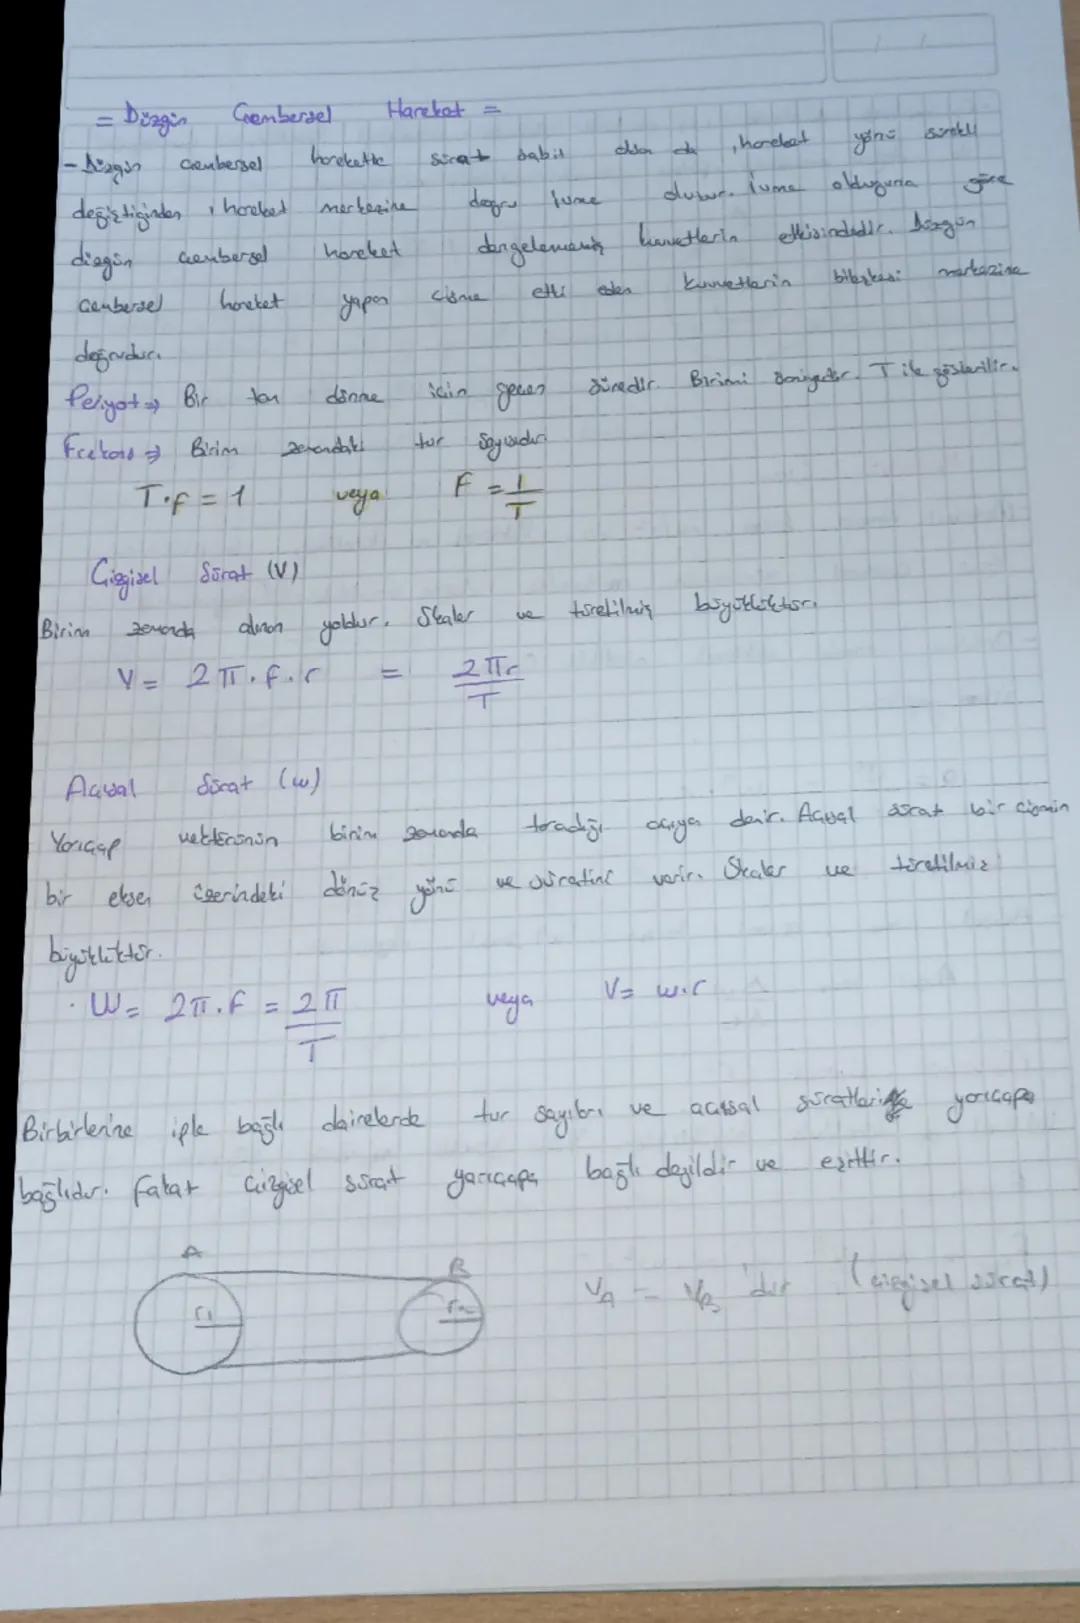 = Düzgün Çembersel Hareket =
- Düzgün çembersel harekette sürat sabit olsa da, hareket yönü sürekli
değiştiğinden, hareket merkezine doğru ivme oluşur. İvme olduğuna göre
düzgün çembersel hareket dengelenmemiş kuvvetlerin etkisindedir. Düzgün
çembersel hareket yapan cisme etki eden kuvvetlerin bileşkesi merkezine
doğrudur.
Periyot => Bir tam dönme için geçen süredir. Birimi saniyedir. T ile gösterilir.
Frekans => Birim zamandaki tur sayısıdır.
T.f = 1 veya F = 1/T
Çizgisel Sürat (V)
Birim zamanda alınan yoldur. Skaler ve türetilmiş büyüklüktür.
V = 2π.f.r = 2πr/T
Açısal Sürat (w)
Yarıçap vektörünün birim zamanda taradığı açıya denir. Açısal sürat bir cismin
bir eksen üzerindeki dönüş yönü ve süratini verir. Skaler ve türetilmiş
büyüklüktür.
. W = 2π.f = 2π/T veya V = w.r
Birbirlerine iple bağlı dairelerde tur sayıları ve açısal süratleri yarıçapa
bağlıdır. fakat çizgisel sürat yarıçapa bağlı değildir ve eşittir.
A B
r1 r2
VA = VB 'dir (çizgisel sürat)